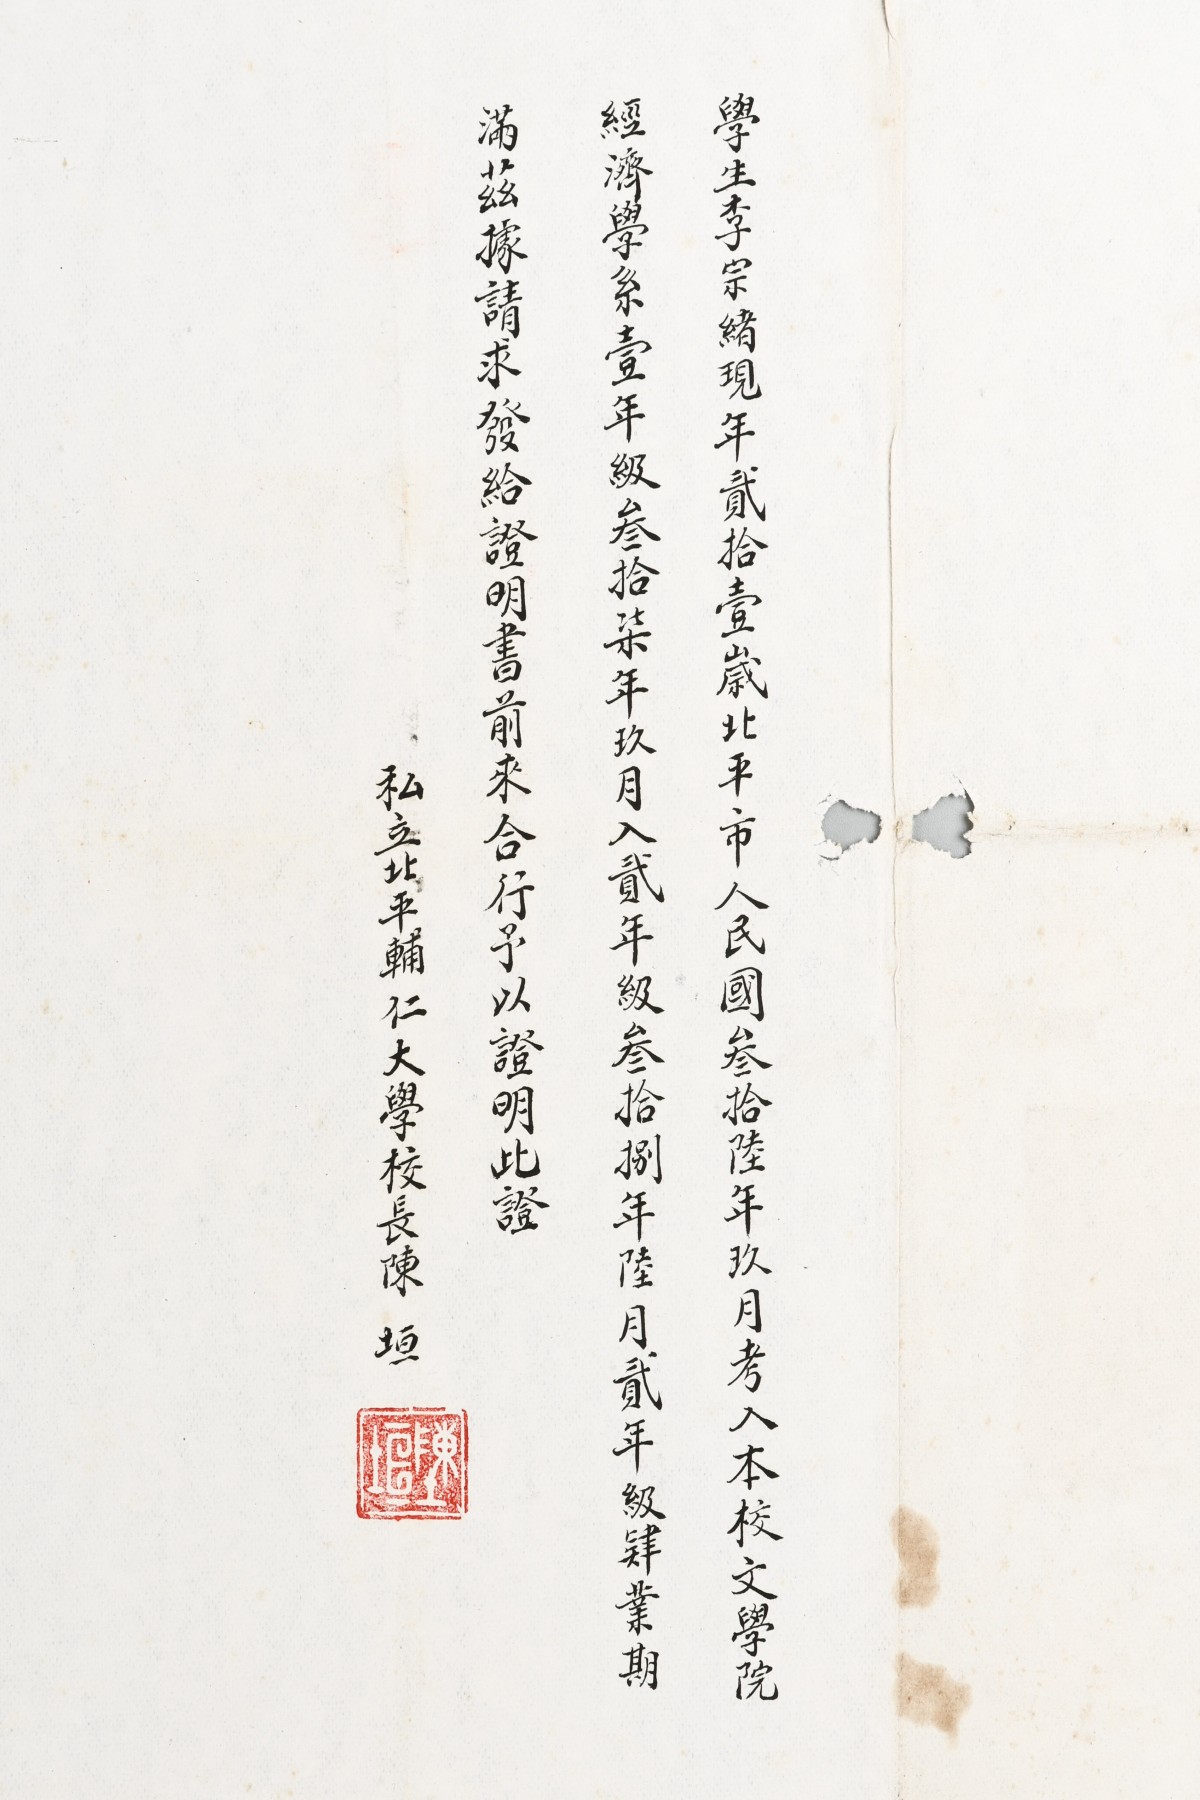 學生李宗緒現年貳拾壹歲北平市人民國叁拾陸年玖月考入本校文學院
經濟學系壹年級叁拾柒年玖月入貳年級叁拾捌年陸月貳年級肄業期
滿茲據請求發給證明書前來合行予以證明此證
私立北平輔仁大學校長陳垣
陳垣